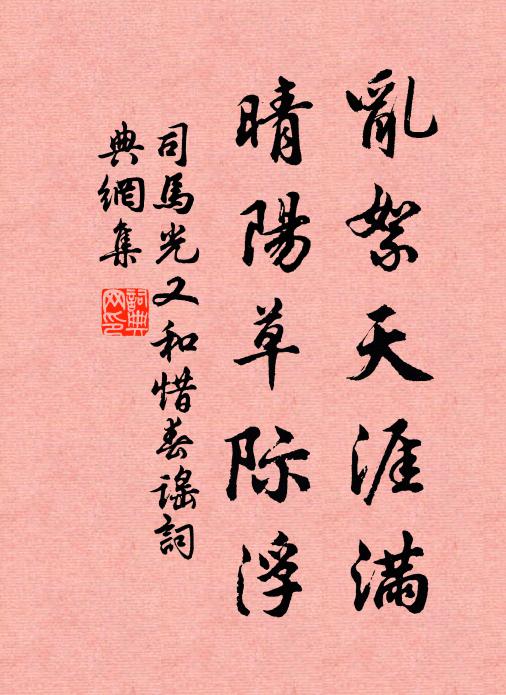 亂絮天涯滿
晴陽草际浮
司馬光又和惜春謠詞
典網集
詞典网印